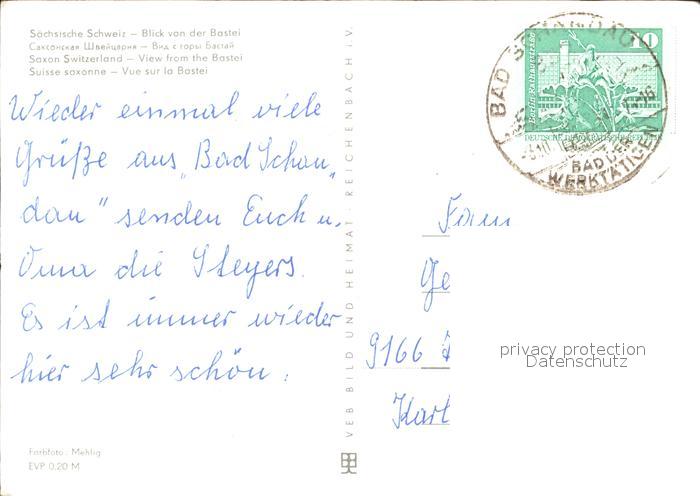 Sächsische Schweiz — Blick von der Bastei
Саксонская Швейцария — Вид с горы Бастай
Saxon Switzerland — View from the Bastei
Suisse saxonne — Vue sur la Bastei
Wieder einmal viele
Grüße aus „Bad Schan„
dau" senden Euch u.
Oma die Steyers.
Es ist immer wieder
hier sehr schön.
Farbfoto: Mehlig
EVP 0,20 M
VEB BILD UND HEIMAT REICHENBACH i. V.
10
DEUTSCHE DEMOKRATISCHE REPUBLIK
BAD SCHANDAU
BAD DER
WERKTÄTIGEN
Fam
Ge
9166
Karl
privacy protection
Datenschutz